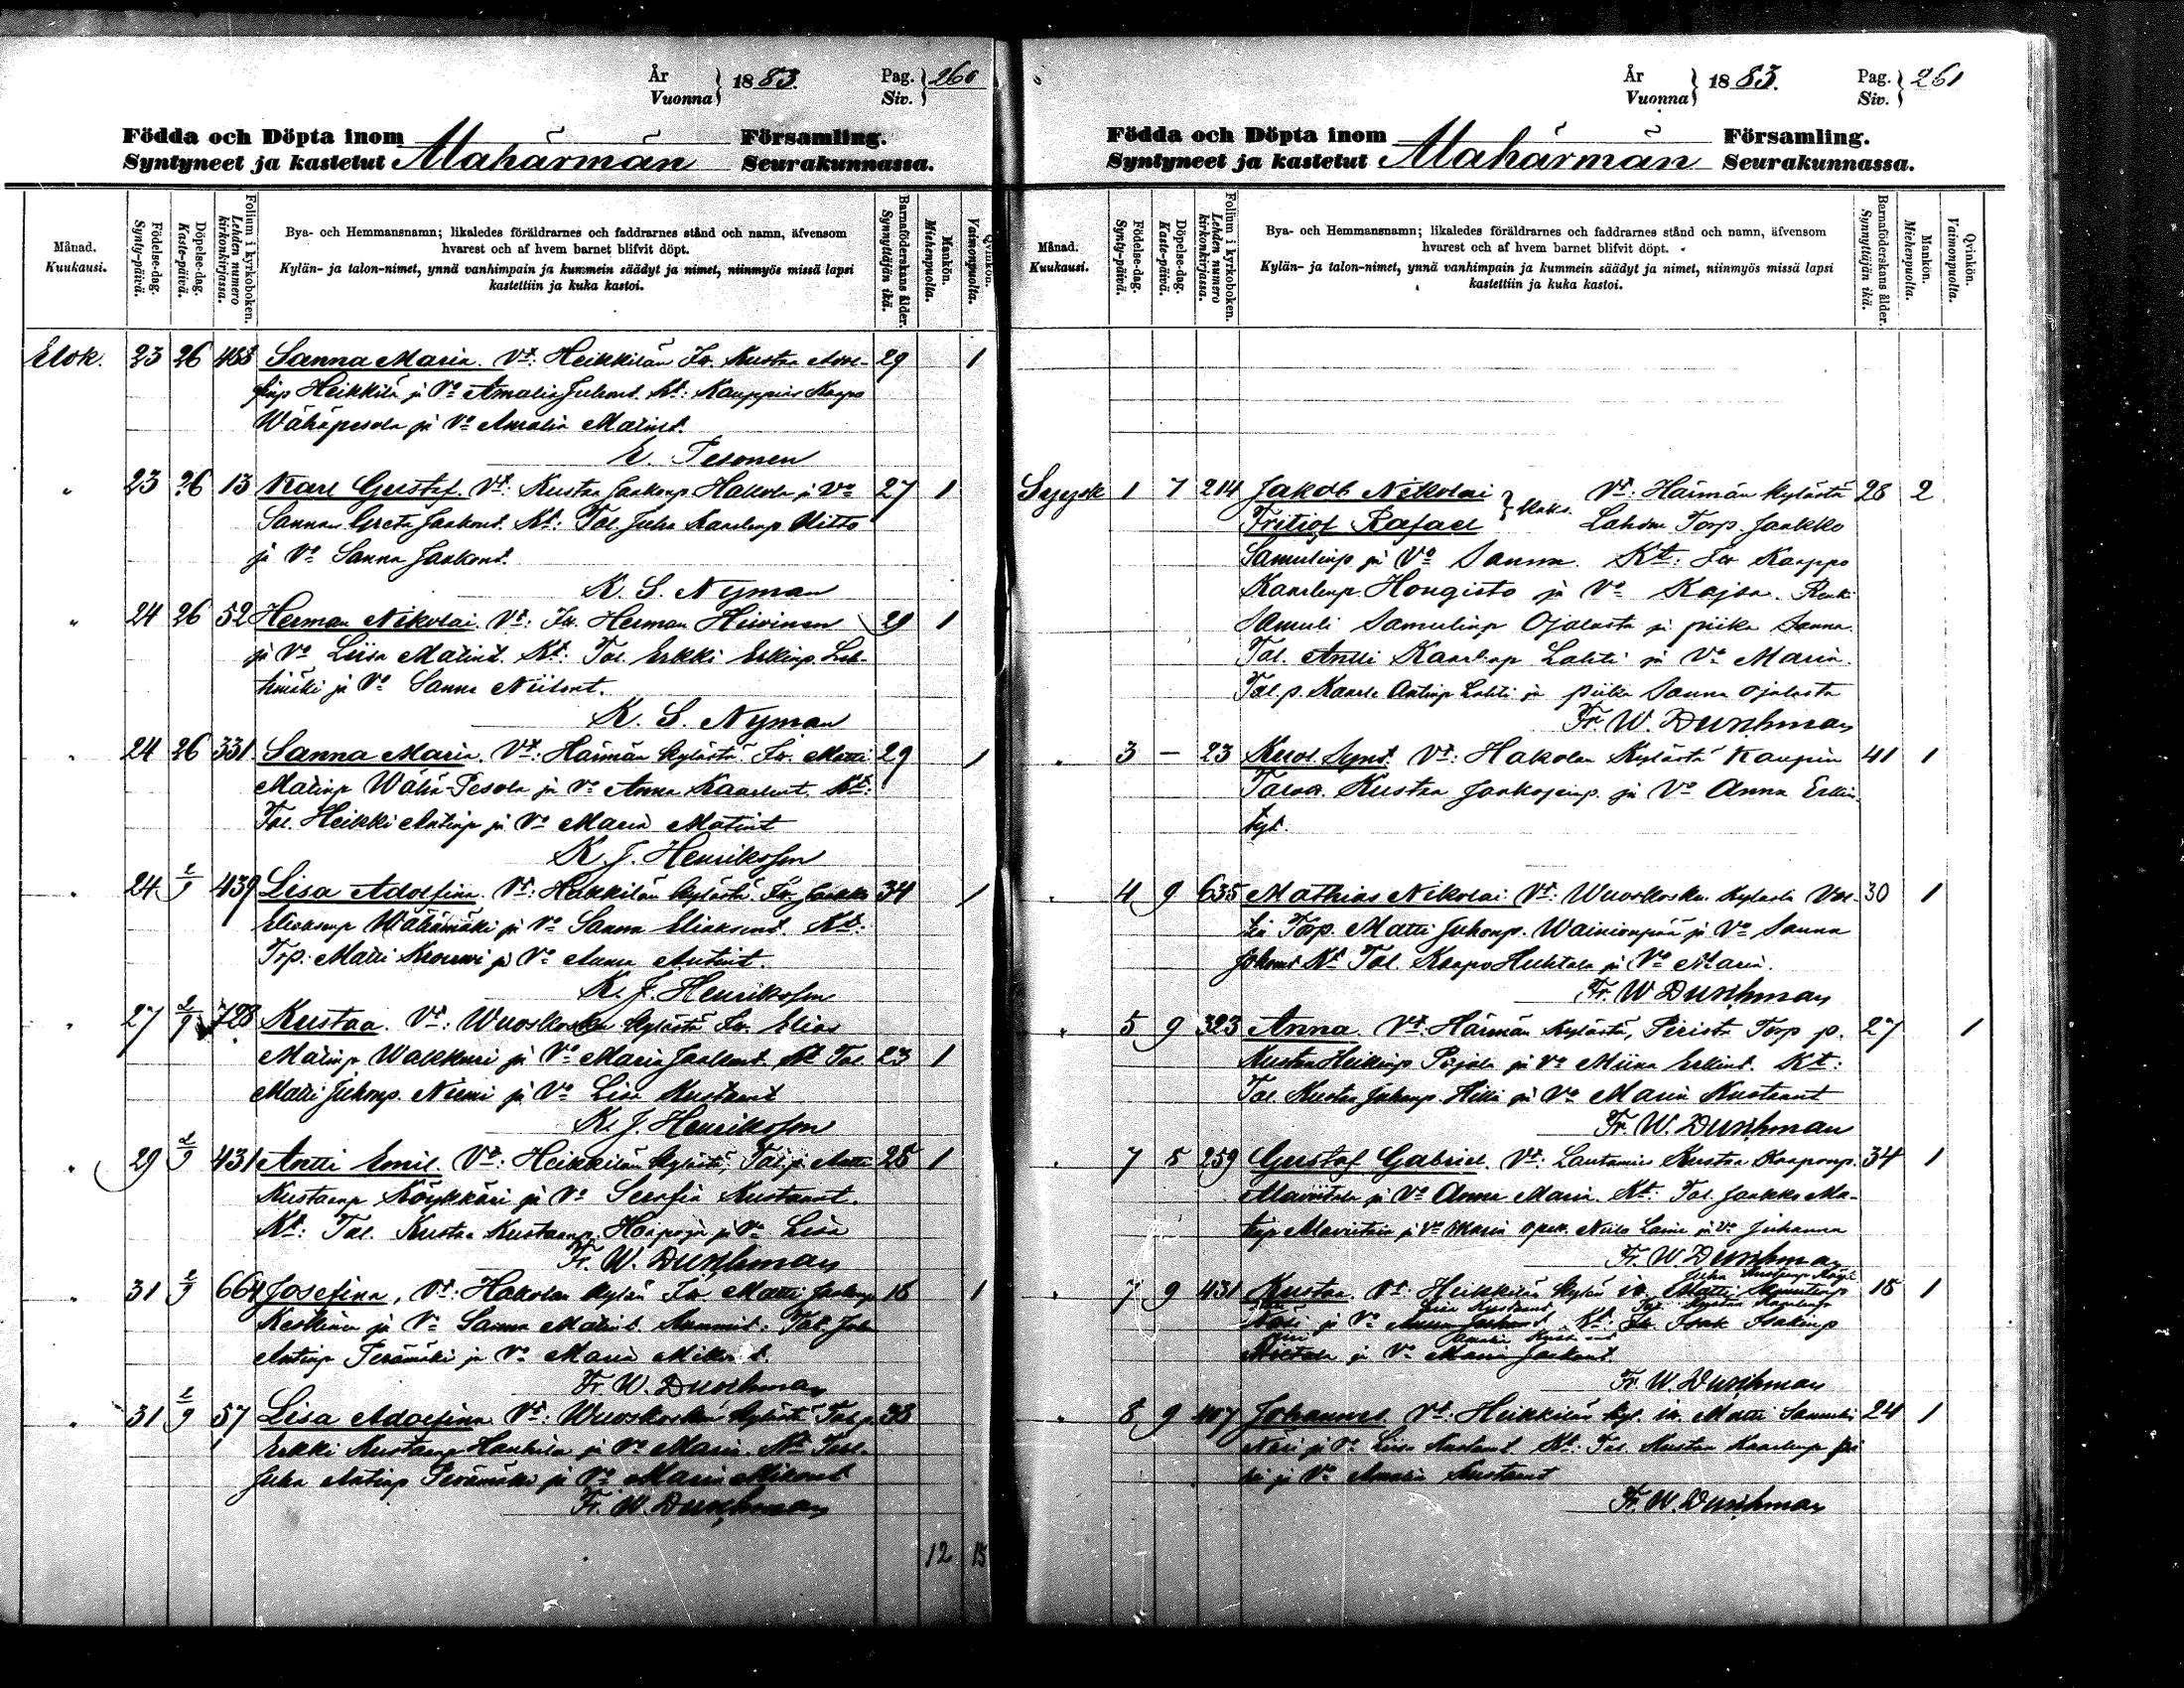 År
Vuonna } 1883. Pag.
Siv. } 260
Födda och Döpta inom Församling.
Syntyneet ja kastetut Alahärmän Seurakunnassa.
Månad.
Kuukausi.
Födelse-dag.
Synty-päivä.
Döpelse-dag.
Kaste-päivä.
Folium i kyrkoboken.
Lehden numero
kirkonkirjassa.
Bya- och Hemmansnamn; likaledes föräldrarnes och faddrarnes stånd och namn, äfvensom
hvarest och af hvem barnet blifvit döpt.
Kylän- ja talon-nimet, ynnä vanhimpain ja kummein säädyt ja nimet, niinmyös missä lapsi
kastettiin ja kuka kastoi.
Barnaföderskans ålder.
Synnyttäjän ikä.
Mankön.
Miehenpuolta.
Qvinkön.
Vaimonpuolta.
Elok. 23 26 488 Sanna Maria. Vt: Heikkilän Kustaa 29 1
Heikkilä ja Vo Amalia Juhont. Kt: Kauppias Kaapo
Wähäpesola ja Vo Amalia Matint.
E. Pesonen
" 23 26 13 Karl Gustaf. Vt: Kustaa Jaakonp. Hakola ja Vo 27 1
Sanna Greta Jaakont. Kt: Tal. Juho Kaarlenp.
ja Vo Sanna Jaakont.
K. S. Nyman
" 24 26 52 Herman Nikolai. Vt: Herman Hirvinen 29 1
ja Vo Liisa Matint. Kt: Tal. Erkki Erkinp.
ja Vo Sanna Niilont.
K. S. Nyman
" 24 26 331 Sanna Maria. Vt: Härmän kylästä Matti 29 1
Matinp Wähä-Pesola ja Vo Anna Kaarlent. Kt:
Tal. Heikki Antinp ja Vo Maria Matint
K. J. Henriksson
" 24 2/9 439 Lisa Adolfina. Vt: Heikkilän kylästä Jaakko 34 1
ja Vo Sanna Eliaksent. Kt:
Trp. Matti ja Vo Anna Antint.
K. J. Henriksson
" 27 2/9 728 Kustaa. Vt: Wuoskosken kylästä Elias
Matinp Walkkuri ja Vo Maria Jaakont. Kt Tal. 23 1
Matti Juhonp. Niemi ja Vo Lisa Kustaant
K. J. Henriksson
" 29 2/9 431 Antti Emil. Vt: Heikkilän kylästä, Tal.p. Antti 25 1
Kustaanp Köykkäri ja Vo Serafia Kustaant.
Kt: Tal. Kustaa Kustaanp. Haapoja ja Vo Lisa
Fr. W. Durchman
" 31 2/9 664 Josefina, Vt: Hakolan kylän Matti 18 1
Keskinen ja Vo Sanna Matint. Kummit: Tal. Juha
Antinp Perämäki ja Vo Maria
Fr. W. Durchman
" 31 2/9 57 Lisa Adolfina Vt: Wuoskosken kylästä Tal.p. 33
Erkki Kustaanp ja Vo Maria. Kt
Juha Antinp Perämäki ja Vo Maria Mikont
Fr. W. Durchman
12 15
År
Vuonna } 1883. Pag.
Siv. } 261
Födda och Döpta inom Församling.
Syntyneet ja kastetut Alahärmän Seurakunnassa.
Månad.
Kuukausi.
Födelse-dag.
Synty-päivä.
Döpelse-dag.
Kaste-päivä.
Folium i kyrkoboken.
Lehden numero
kirkonkirjassa.
Bya- och Hemmansnamn; likaledes föräldrarnes och faddrarnes stånd och namn, äfvensom
hvarest och af hvem barnet blifvit döpt.
Kylän- ja talon-nimet, ynnä vanhimpain ja kummein säädyt ja nimet, niinmyös missä lapsi
kastettiin ja kuka kastoi.
Barnaföderskans ålder.
Synnyttäjän ikä.
Mankön.
Miehenpuolta.
Qvinkön.
Vaimonpuolta.
Syysk 1 7 214 Jakob Nikolai } kaks. Vt: Härmän kylästä 28 2
Fritiof Rafael Lahden Torp. Jaakko
Samulinp ja Vo Sanna. Kt: Kaappo
Kaarlenp. Hongisto ja Vo Kajsa. Renki
Samuli Samulinp Ojalasta ja piika Sanna.
Tal. Antti Kaarlenp Lahti ja Vo Maria.
Tal.p. Kaarle Antinp Lahti ja piika Sanna Ojalasta
Fr. W. Durchman
" 3 – 23 Kuol. Synt. Vt: Hakolan kylästä Kaupin 41 1
Kustaa ja Vo Anna Erkin
tyt.
" 4 9 635 Mathias Nikolai Vt: Wuoskosken kylästä 30 1
Torp. Matti Juhonp. Wainionpää ja Vo Sanna
Kt Tal. Kaapo Huhtala ja Vo Maria.
Fr. W. Durchman
" 5 9 323 Anna. Vt: Härmän kylästä, Torp p. 27 1
Kustaa Heikinp ja Vo Miina Erkint. Kt:
Tal. Kustaa Juhanp. ja Vo Maria Kustaant
Fr. W. Durchman
" 7 8 259 Gustaf Gabriel. Vt: Lautamies Kustaa Kaaponp. 34 1
ja Vo Anna Maria. Kt: Tal. Jaakko Ma-
tinp ja Vo Maria Niilo ja Vo Juhanna
Fr. W. Durchman
Juha Kustaanp
" 7 9 431 Kustaa. Vt: Heikkilän kylän Matti 18 1
Liisa Kustaant Tal. Kustaa Kaarlenp
Näsi ja Vo Anna Kt: Isak Isakinp
Amalia
ja Vo Maria Jaakont.
Fr. W. Durchman
" 8 9 407 Johannes. Vt: Heikkilän kyl. Matti 24 1
Näsi ja Vo Liisa Kustaant. Kt: Tal. Kustaa Kaarlenp
ja Vo Amalia Kustaant
Fr. W. Durchman